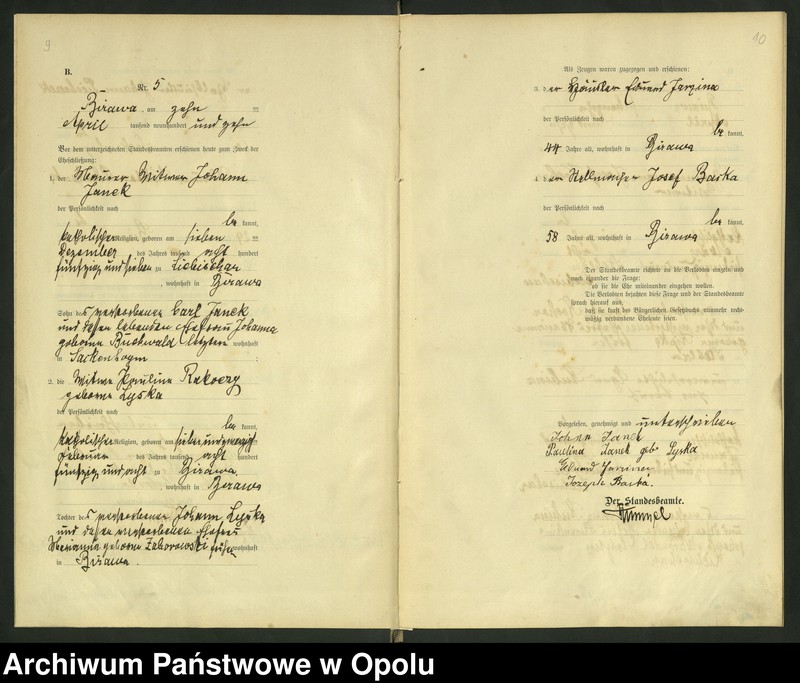 9
B.
Nr. 5
Birawa, am zehn ten
April tausend neunhundert und zehn
Vor dem unterzeichneten Standesbeamten erschienen heute zum Zweck der
Eheschließung:
1. der Maurer Witwer Johann
Janek
der Persönlichkeit nach
be kannt,
katholischer Religion, geboren am sieben ten
Dezember des Jahres tausend acht hundert
fünfzig und sieben zu Libischau
, wohnhaft in Birawa
Sohn des verstorbenen Carl Janek
und dessen lebenden Ehefrau Johanna
geborne Buchwald letztere wohnhaft
in Sackenhoym
2. die Witwe Paulina Rakoczy
geborne Lyska
der Persönlichkeit nach
be kannt,
katholischer Religion, geboren am sieben und zwanzigsten
Februar des Jahres tausend acht hundert
fünfzig und acht zu Birawa
, wohnhaft in Birawa
Tochter des verstorbenen Johann Lyska
und dessen verstorbenen Ehefrau
Marianna geborne Zaborowski früher wohnhaft
in Birawa.
10
Als Zeugen waren zugezogen und erschienen:
3. der Häusler Eduard Jarzina
der Persönlichkeit nach
be kannt,
44 Jahre alt, wohnhaft in Birawa
4. der Stellmacher Josef Baska
der Persönlichkeit nach
be kannt,
58 Jahre alt, wohnhaft in Birawa
Der Standesbeamte richtete an die Verlobten einzeln und
nach einander die Frage:
ob sie die Ehe miteinander eingehen wollen.
Die Verlobten bejahten diese Frage und der Standesbeamte
sprach hierauf aus,
daß sie kraft des Bürgerlichen Gesetzbuchs nunmehr recht-
mäßig verbundene Eheleute seien.
Vorgelesen, genehmigt und unterschrieben
Johann Janek
Paulina Janek geb Lyska
Eduard Jarzina
Jozeph Baska.
Der Standesbeamte.
Hummel
Archiwum Państwowe w Opolu